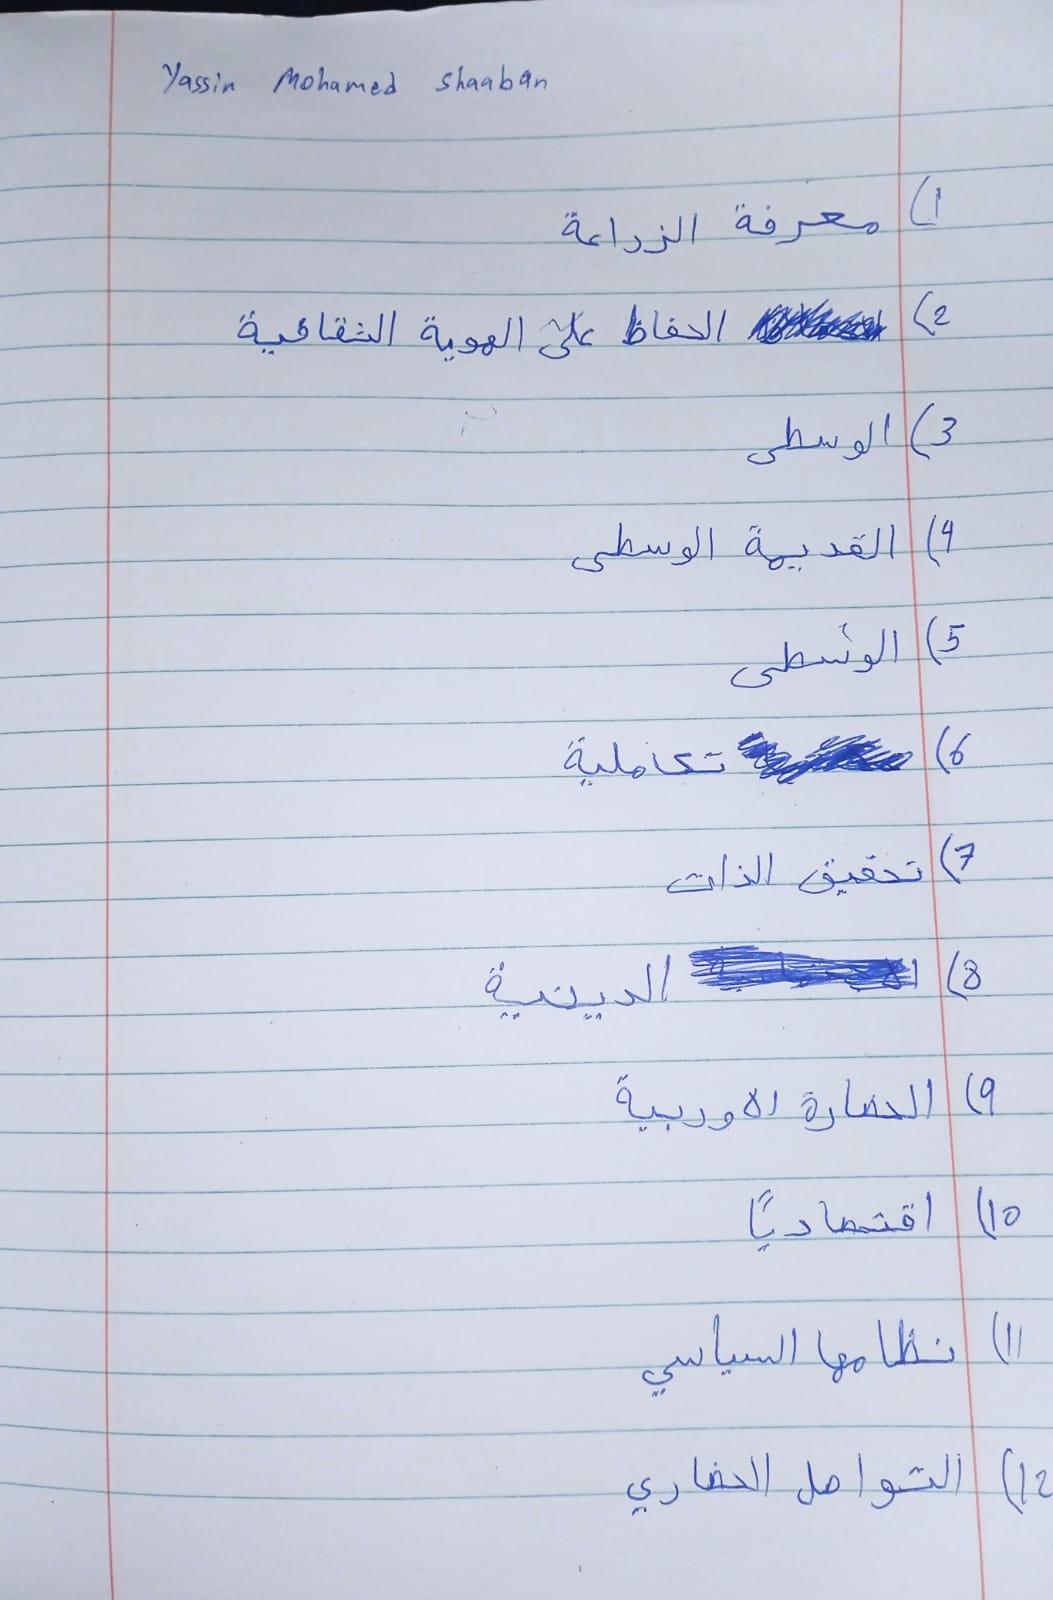 Yassin Mohamed Shaaban
1) معرفة الزراعة
2) الحفاظ على الهوية الثقافية
3) الوسطى
4) القديمة الوسطى
5) الوسطى
6) تكاملية
7) تحقيق الذات
8) الدينية
9) الحضارة الاوربية
10) اقتصاديًا
11) نظامها السياسي
12) التواصل الحضاري